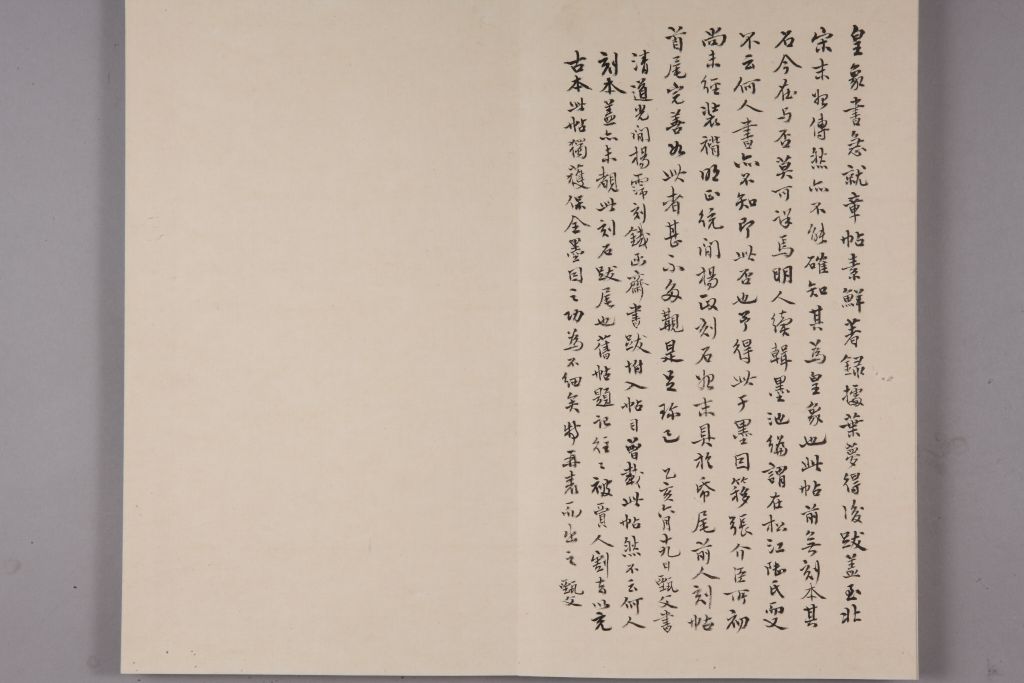 皇象書急就章帖素鮮著録據葉夢得後跋蓋至北
宋末始傳然亦不能確知其為皇象也此帖前無刻本其
石今在与否莫可详焉明人續輯墨池編謂在松江陸氏更
不云何人書亦不知即此否也予得此于墨因簃張介臣所初
尚未經裝褙明正統間楊政刻石始末具於帋尾前人刻帖
首尾完善如此者甚不多觀是足珎已 乙亥六月十九日甄父書
清道光間楊霈刻鐵函齋書跋坿入帖目曾載此帖然不云何人
刻本蓋亦未覩此刻石跋尾也舊帖題記往〻被賈人割去以充
古本此帖獨獲保全墨因之功為不細矣特再表而出之 甄父